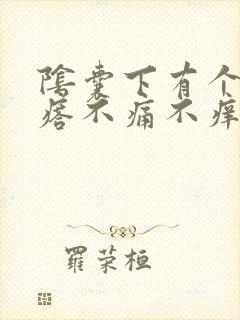 陰囊下有个
痞不痛不痒
羅荣桓